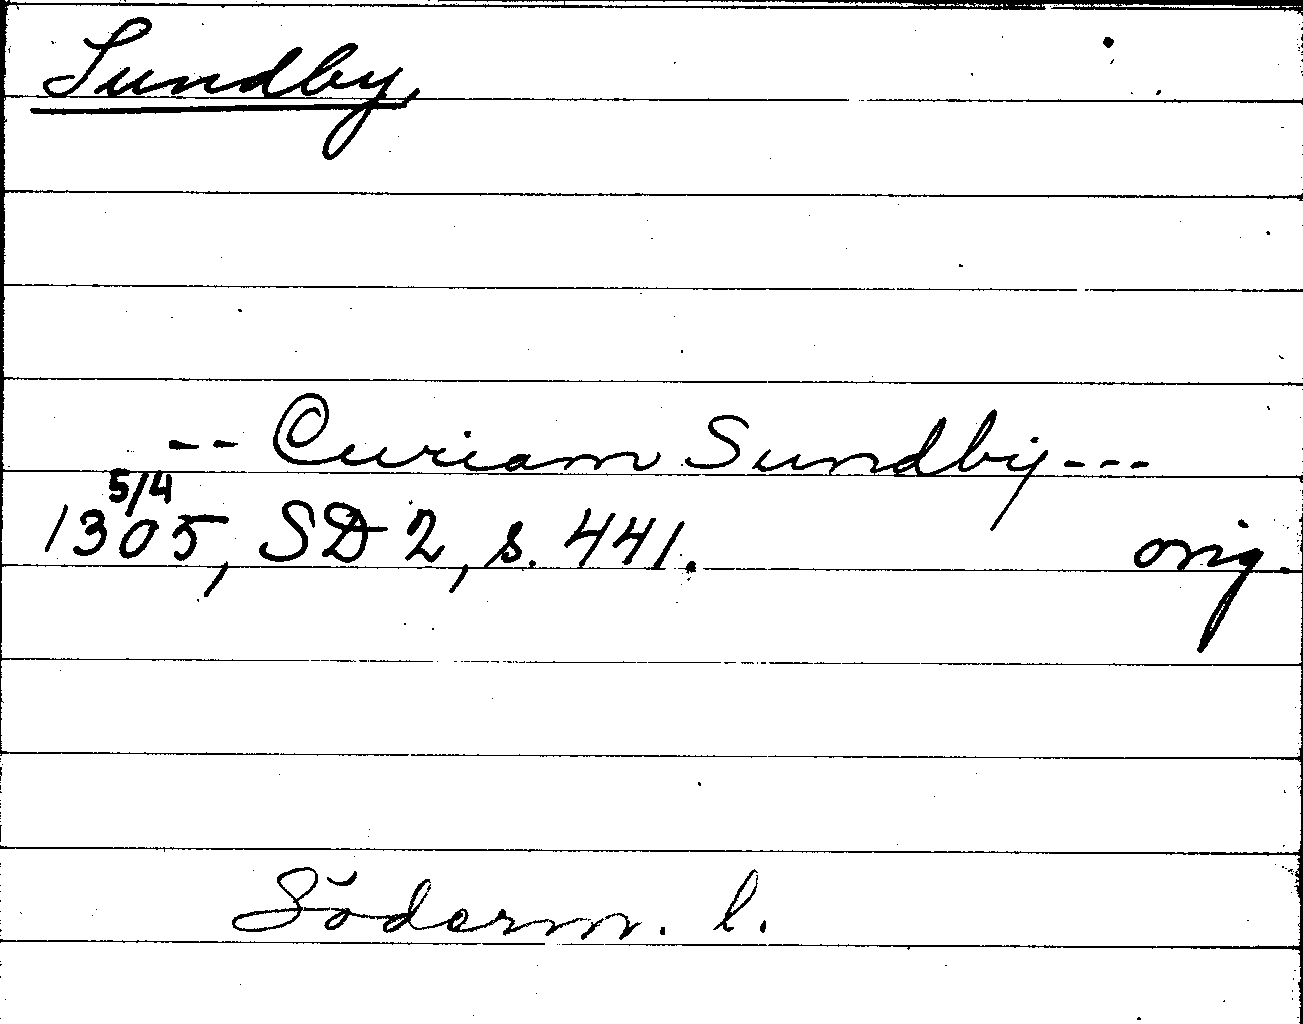 Sundby,
-- Curiam Sundby---
5/4
1305, SD 2, s. 441. orig.
Söderm. l.